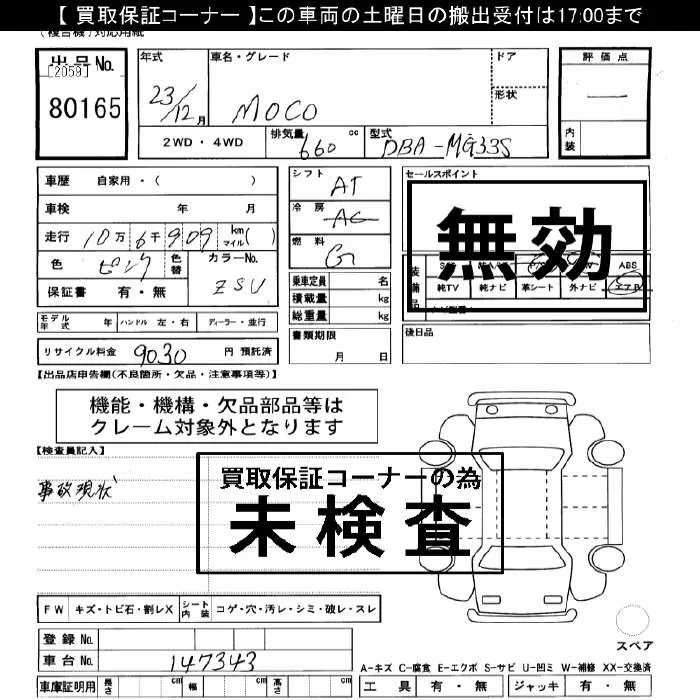 【 買取保証コーナー 】この車両の土曜日の搬出受付は17:00まで
(複合機)対応用紙
出品No.
[2059]
80165
年式
23/12月
車名・グレード
MOCO
ドア
形状
評価点
—
内装
2WD・4WD
排気量 660 cc
型式 DBA-MG33S
車歴 自家用・( )
車検 年 月
走行 10万6千909 km マイル( )
色 ピンク 色替
カラーNo. ZSU
保証書 有・無
シフト AT
冷房 AC
燃料 G
乗車定員 名
積載量 kg
総重量 kg
セールスポイント
無効
装備品
ABS
純TV 純ナビ 革シート 外ナビ エアB
モデル年式 年 ハンドル 左・右 ディーラー・並行
書類期限
月 日
後日品
リサイクル料金 9030 円 預託済
【出品店申告欄(不良箇所・欠品・注意事項等)】
機能・機構・欠品部品等は
クレーム対象外となります
【検査員記入】
事故現状
買取保証コーナーの為
未検査
FW キズ・トビ石・割レX シート内装 コゲ・穴・汚レ・シミ・破レ・スレ
登録No.
車台No. 147343
車庫証明用 長さ cm 幅 cm 高さ cm
スペア
A-キズ C-腐食 E-エクボ S-サビ U-凹ミ W-補修 XX-交換済
工具 有・無 ジャッキ 有・無